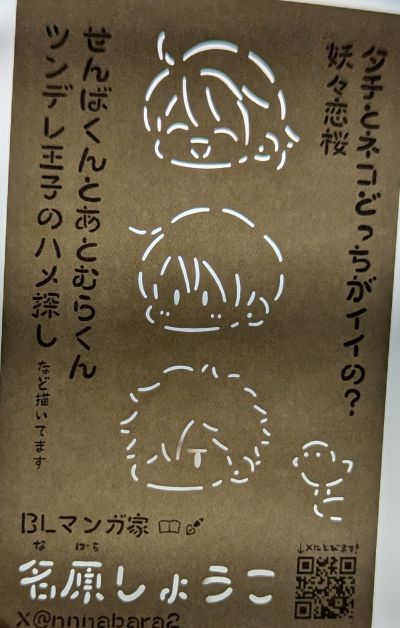 タチとネコどっちがイイの?
妖々恋桜
せんばくんとあとむらくん
ツンデレ王子のハメ探し
など描いてます
BLマンガ家
なばら
名原しょうこ
X@nnnabara2